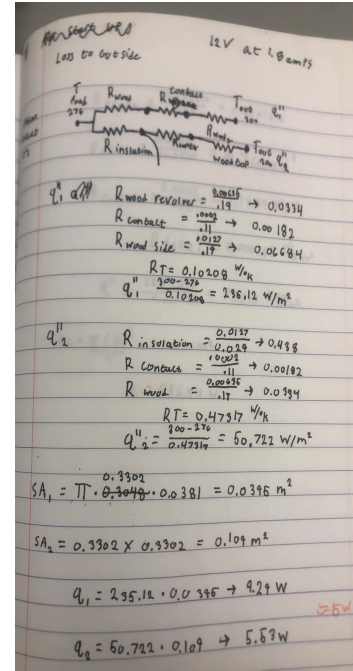 Loss to outside
12V at 1.8 amps
T food 276
R wood
R contact
T out 300 q₁"
R insolation
R contact
R wood
wood top
T out 300 q₂"
q₁"
R wood revolver = 0.00635/.19 → 0.0334
R contact = .0002/.11 → 0.00182
R wood side = .0127/.19 → 0.06684
RT = 0.10208 W/K
q₁" 300-276/0.10208 = 235.12 W/m²
q₂"
R insolation = 0.0127/0.029 → 0.438
R contact = .0002/.11 → 0.00182
R wood = 0.00635/.19 → 0.0334
RT = 0.47317 W/K
q₂" = 300-276/0.47317 = 50.722 W/m²
0.3302
SA₁ = π · 0.3048 · 0.0381 = 0.0395 m²
SA₂ = 0.3302 x 0.3302 = 0.109 m²
q₁ = 235.12 · 0.0395 → 9.29 W
≈5W
q₂ = 50.722 · 0.109 → 5.53W